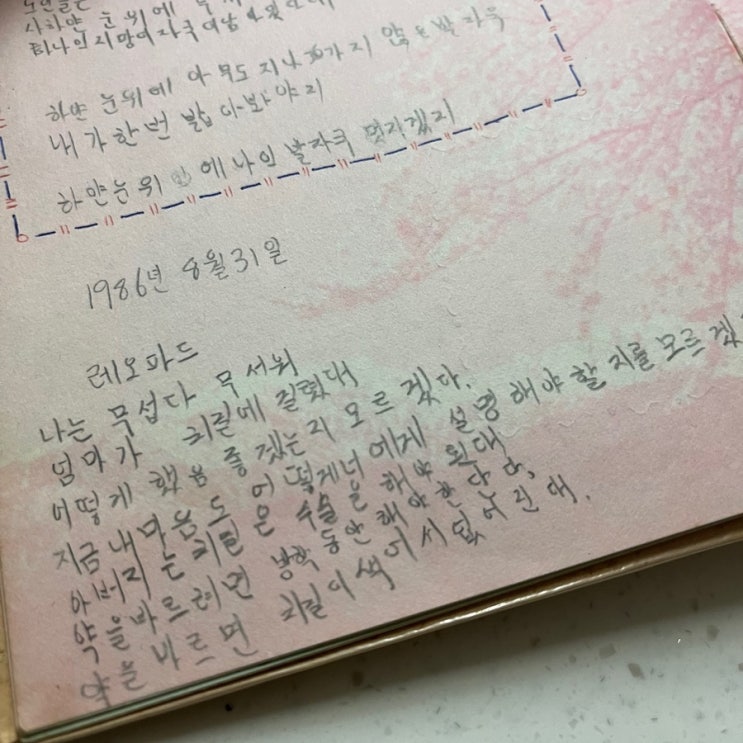 하얀 눈위에 아무도 지나가지 않은 발자욱
내가 한번 밟아봐야지
하얀눈위에 나의 발자국 멋지겠지
1986년 8월 31일
레오파드
나는 무섭다 무서워
엄마가 치질에 걸렸대
어떻게 했음 좋겠는지 모르겠다.
지금 내마음도 어떻게 너에게 설명해야 할지를 모르겠
아버지는 치질은 수술을 해야 된대
약을바르려면 방학동안 해야한단다.
약을 바르면 치질이 썩어서 없어진대.